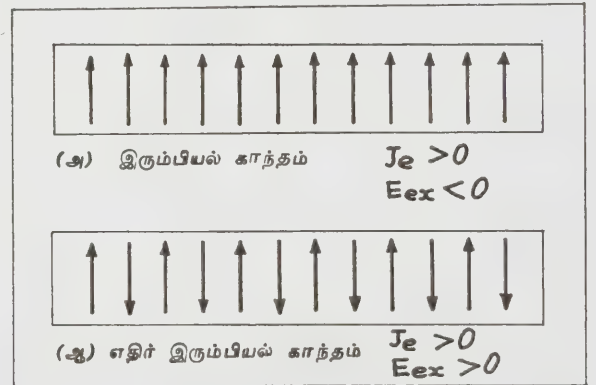 (அ) இரும்பியல் காந்தம் Je >0
Eex <0
(ஆ) எதிர் இரும்பியல் காந்தம் Je >0
Eex >0